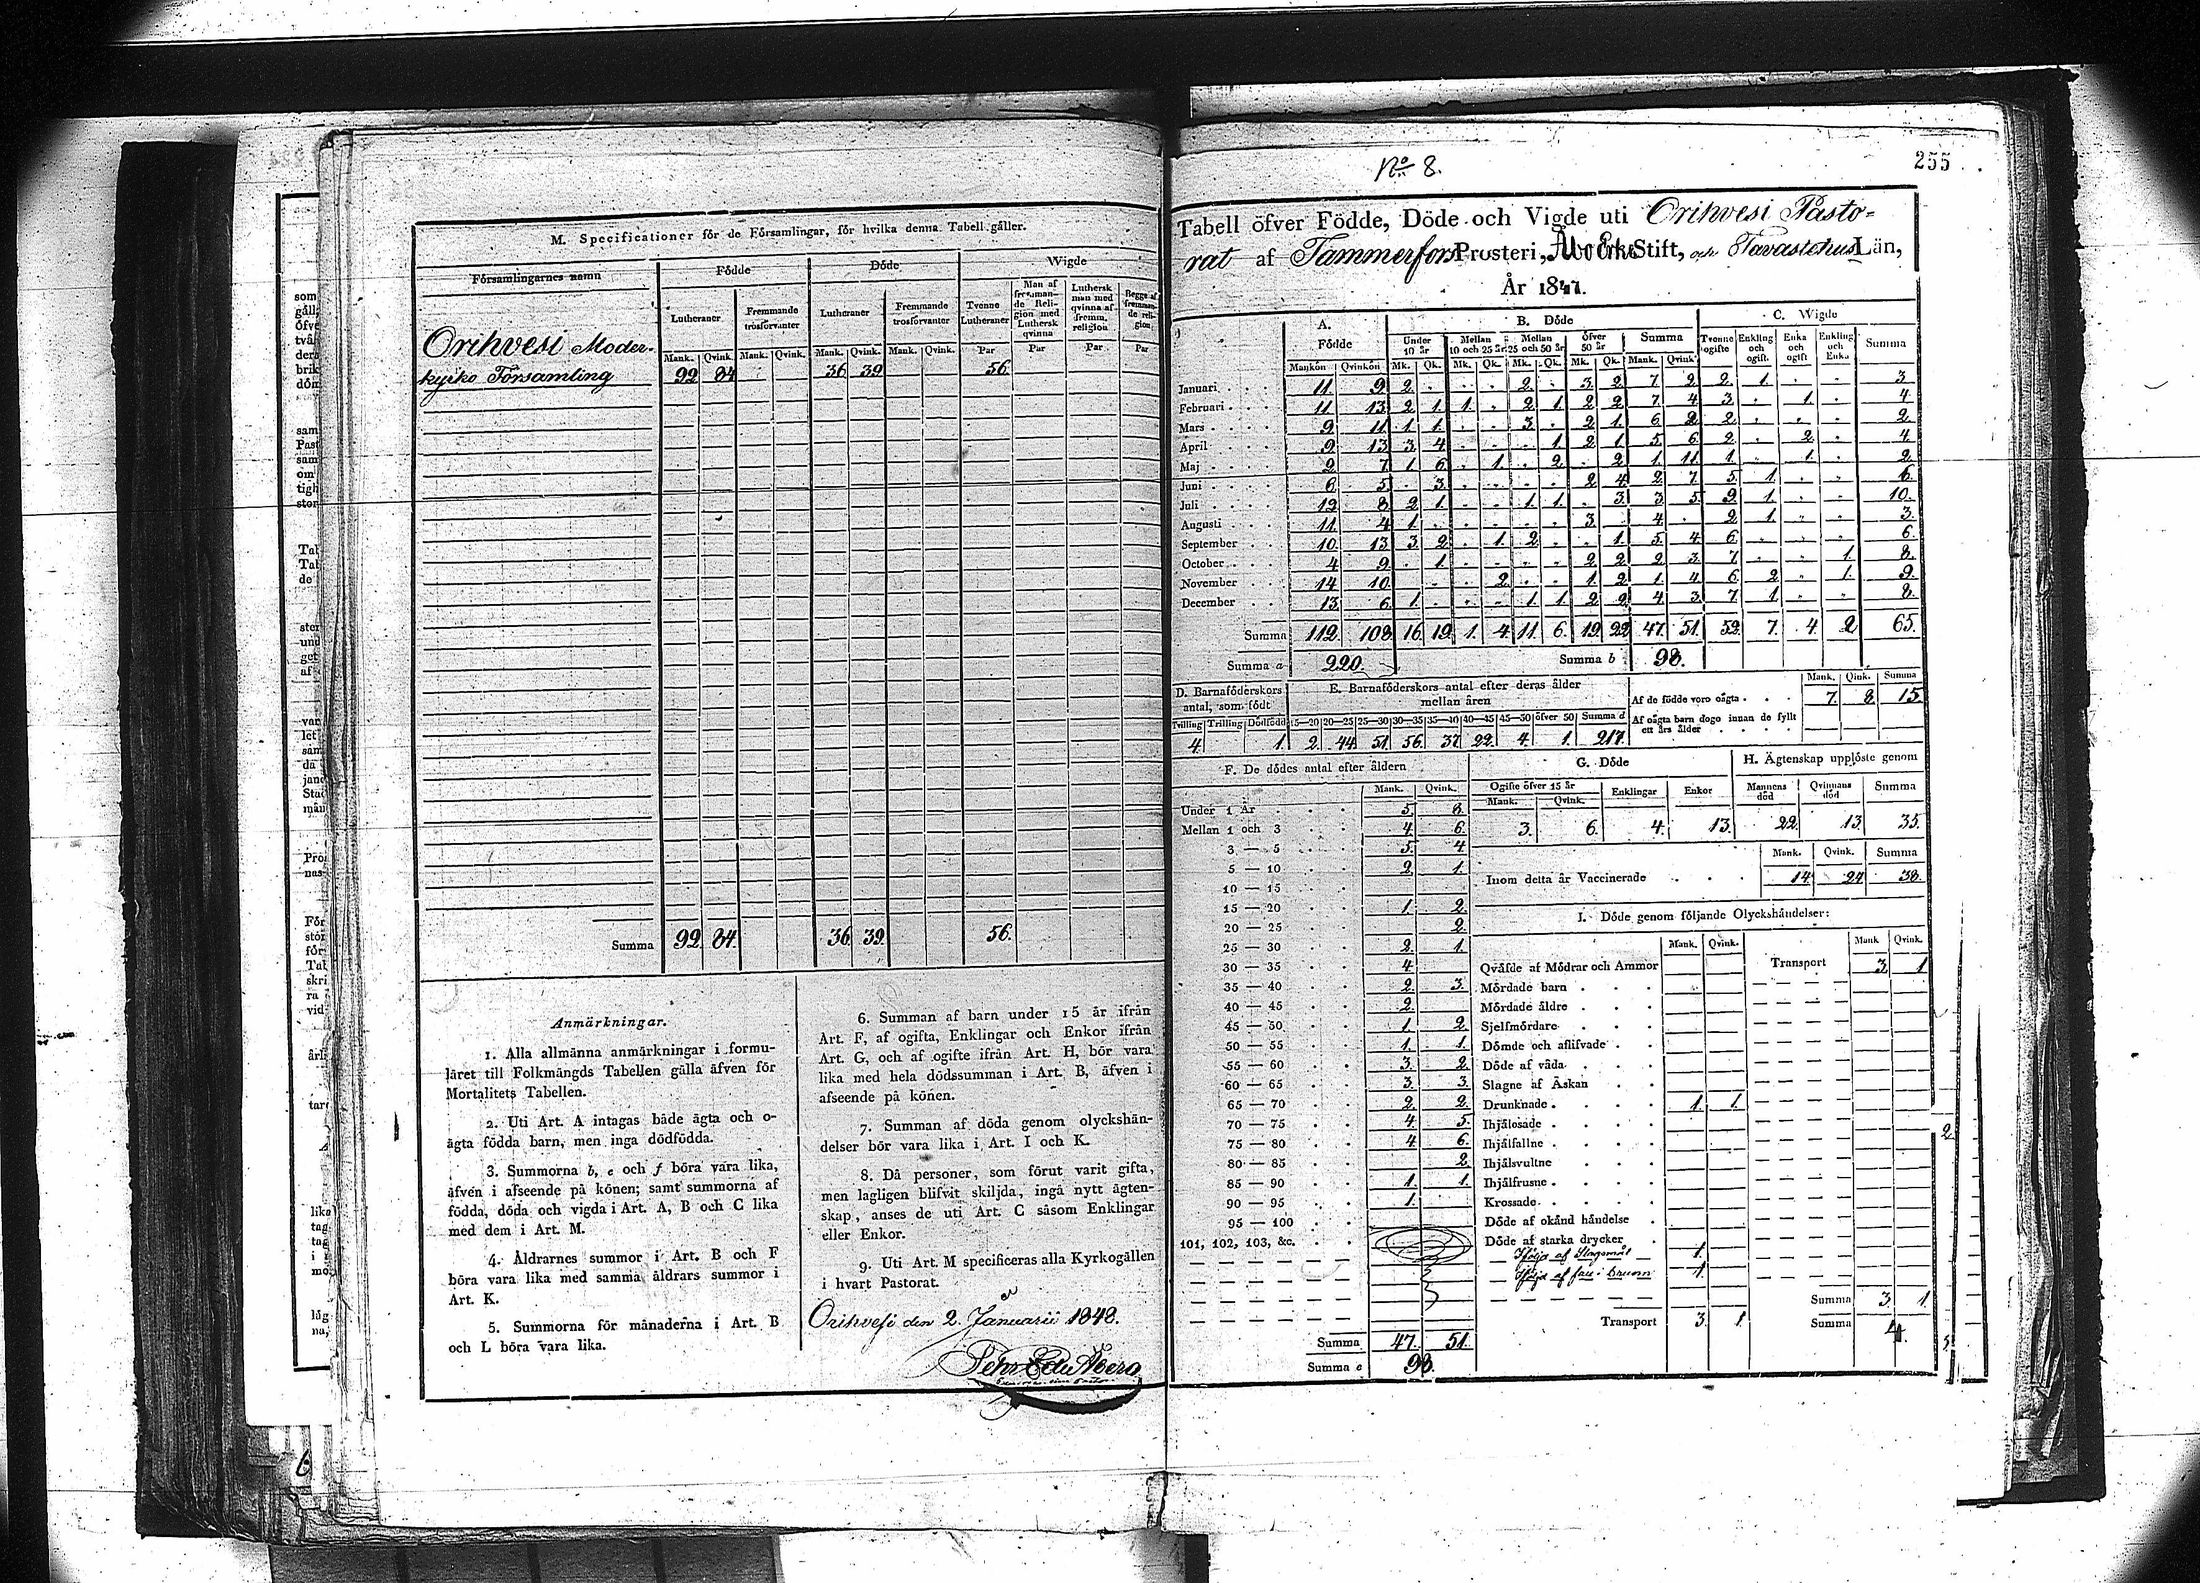 M. Specificationer för de Församlingar, för hvilka denna Tabell gäller.
Församlingarnes namn Födde Döde Wigde
Lutheraner Fremmande trosförvanter Lutheraner Fremmande trosförvanter Tvenne Lutheraner Man af fremmande Religion med Luthersk qvinna Luthersk man med qvinna af fremm. religion Begge af fremmande religion
Mank. Qvink. Mank. Qvink. Mank. Qvink. Mank. Qvink. Par Par Par Par
Orihvesi Moder-
kyrko Församling 99 84 36 39 56.
Summa 99 84 36 39. 56.
Anmärkningar.
1. Alla allmänna anmärkningar i formu-
läret till Folkmängds Tabellen gälla äfven för
Mortalitets Tabellen.
2. Uti Art. A intagas både ägta och o-
ägta födda barn, men inga dödfödda.
3. Summorna b, e och f böra vara lika,
äfven i afseende på könen; samt summorna af
födda, döda och vigda i Art. A, B och C lika
med dem i Art. M.
4. Åldrarnes summor i Art. B och F
böra vara lika med samma åldrars summor i
Art. K.
5. Summorna för månaderna i Art. B
och L böra vara lika.
6. Summan af barn under 15 år ifrån
Art. F, af ogifta, Enklingar och Enkor ifrån
Art. G, och af ogifte ifrån Art. H, bör vara
lika med hela dödssumman i Art. B, äfven i
afseende på könen.
7. Summan af döda genom olyckshän-
delser bör vara lika i Art. I och K.
8. Då personer, som förut varit gifta,
men lagligen blifvit skiljda, ingå nytt ägten-
skap, anses de uti Art. C såsom Enklingar
eller Enkor.
9. Uti Art. M specificeras alla Kyrkogällen
i hvart Pastorat.
Orihvesi den 2. Januarii 1848.
No 8.
255
Tabell öfver Födde, Döde och Vigde uti Orihvesi Pasto-
rat af Tammerfors Prosteri, Åbo Erke Stift, och Tavastehus Län,
År 1847.
A. Födde B. Döde C. Wigde
Under 10 år Mellan 10 och 25 år Mellan 25 och 50 år Öfver 50 år Summa Tvenne ogifte Enkling och ogift. Enka och ogift Enkling och Enka Summa
Mankön Qvinkön Mk. Qk. Mk. Qk. Mk. Qk. Mk. Qk. Mank. Qvink
Januari 11. 9 2. . . . 2. . 3. 2 7. 2 2. 1. . . 3.
Februari 11 13. 2 1. 1. . 2. 1. 2 2 7. 4 3. . 1. . 4
Mars 9. 11. 1. 1. . . 3. . 2 1. 6 2 2. . . . 2.
April 9 13 3. 4 . . . 1. 2 1. 5. 6. 2. . 2. . 4
Maj 2. 7. 1. 6. . 1. . 2. . 2 1. 11. 1. . 1. . 2.
Juni 6. 5. . 3. . . . . 2 4 2 7 5. 1. . . 6.
Juli 12. 8. 2 1. . . 1. 1. . 3 3. 5 9. 1. . . 10.
Augusti 11. 4 1. . . . . . 3. . 4 . 2 1. . . 3.
September 10. 13. 3. 2. . 1. 2. . . 1. 5. 4 6. . . . 6.
October 4 9. . 1. . . . . 2 2 2 3. 7. . . 1. 8.
November 14 10. . . . 2. . . 1. 2 1. 4 6. 2 . 1. 9.
December 13. 6. 1. . . . 1. 1. 2 2. 4 3. 7 1. . . 8.
Summa 112. 108 16. 19. 1. 4. 11. 6. 19. 22 47. 51. 52. 7. 4. 2 65.
Summa a 220. Summa b 98.
D. Barnaföderskors antal, som födt
E. Barnaföderskors antal efter deras ålder mellan åren
Tvilling Trilling Dödfödd 15—20 20—25 25—30 30—35 35—40 40—45 45—50 öfver 50 Summa d
4. 1. 2. 44 51. 56. 37. 22. 4. 1. 217.
Mank. Qink. Summa
Af de födde voro oägta 7. 8. 15.
Af oägta barn dogo innan de fyllt
ett års ålder
F. De dödes antal efter åldern
Mank. Qvink.
Under 1 År 5. 8.
Mellan 1 och 3 4. 6.
3 — 5 5. 4
5 — 10 2. 1.
10 — 15
15 — 20 1. 2
20 — 25 2.
25 — 30 2. 1.
30 — 35 4.
35 — 40 2. 3.
40 — 45 2.
45 — 50 1. 2.
50 — 55 1. 1.
55 — 60 3. 2.
60 — 65 3. 3.
65 — 70 2. 2.
70 — 75 4. 5.
75 — 80 4. 6.
80 — 85 2.
85 — 90 1. 1.
90 — 95 1.
95 — 100
101, 102, 103, &c.
Summa 47. 51.
Summa e 98.
G. Döde
Ogifte öfver 15 år Enklingar Enkor
Mank. Qvink.
3. 6. 4. 13.
H. Ägtenskap upplöste genom
Mannens död Qvinnans död Summa
22. 13. 35.
Mank. Qvink. Summa
Inom detta år Vaccinerade 14 24 38.
I. Döde genom följande Olyckshändelser:
Mank. Qvink. Mank Qvink.
Qväfde af Mödrar och Ammor Transport 3. 1
Mördade barn
Mördade äldre
Sjelfmördare
Dömde och aflifvade
Döde af våda
Slagne af Åskan
Drunknade 1. 1.
Ihjälosade
Ihjälfallne
Ihjälsvultne
Ihjälfrusne
Krossade
Döde af okänd händelse
Döde af starka drycker
Ifölje af Slagsmål 1.
Summa 3. 1.
Transport 3. 1. Summa 4.